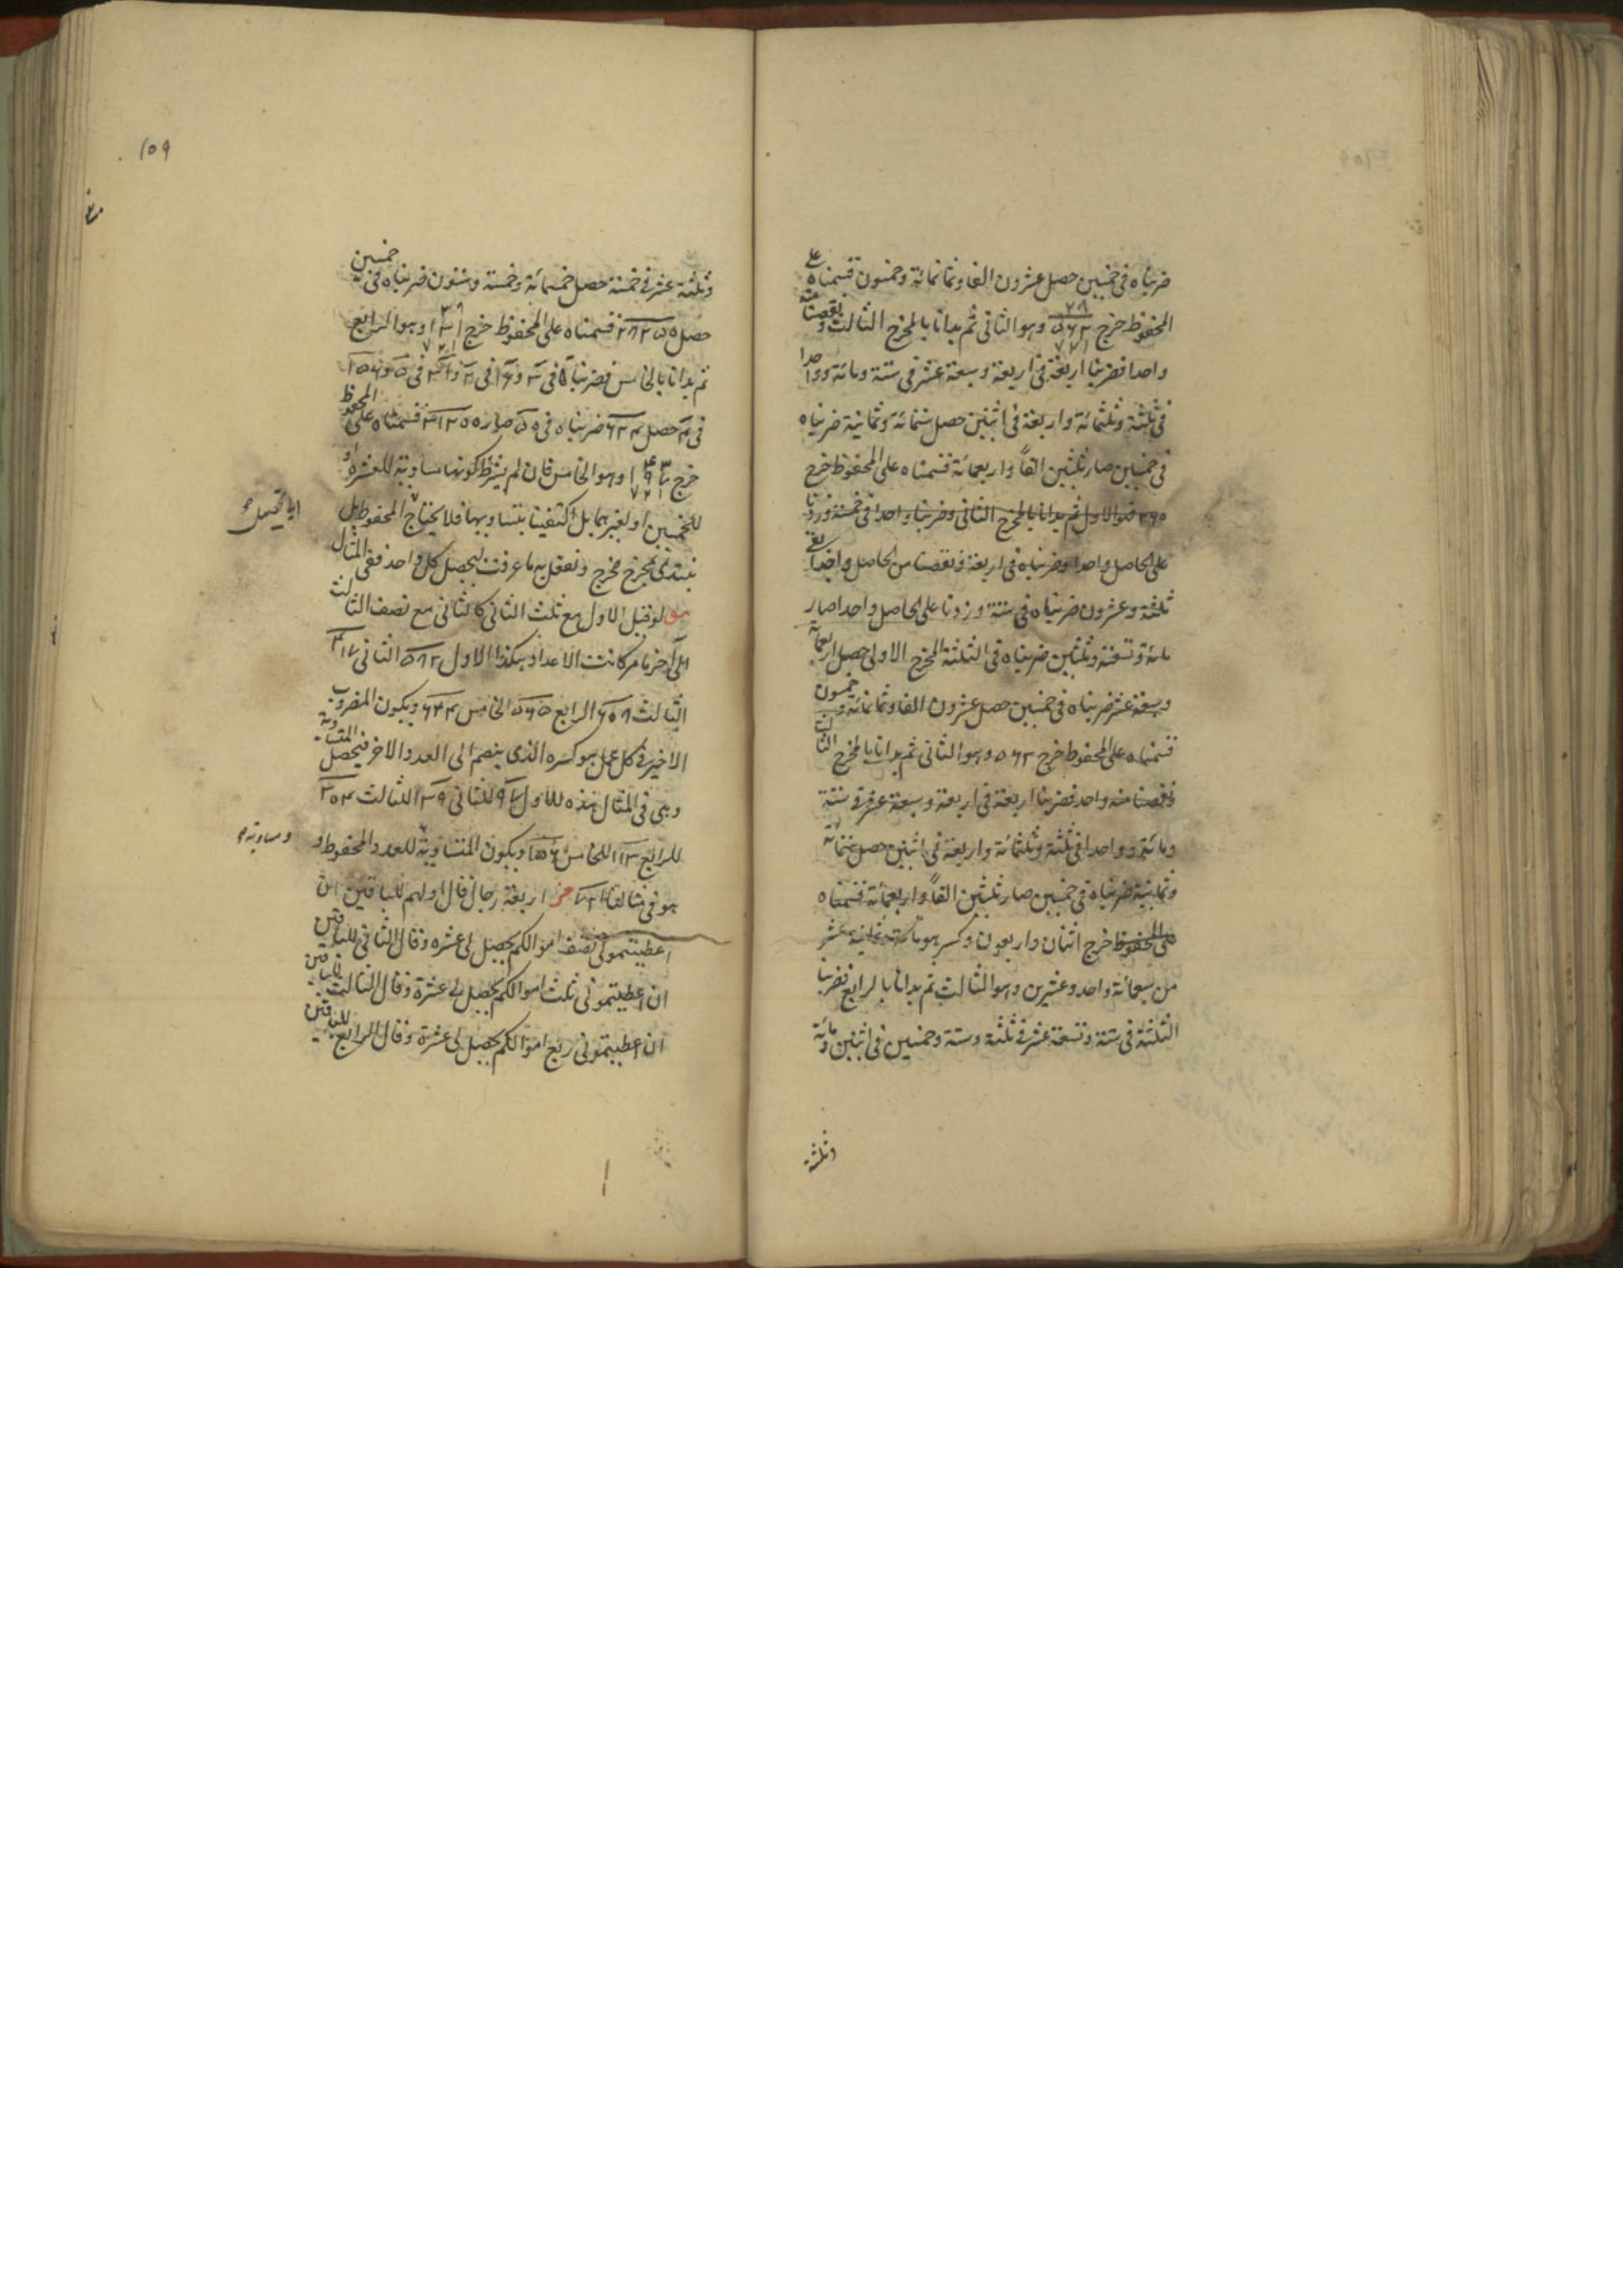 ضربناه في خمسين حصل عشرون الفا وثمانمائة وخمسون قسمناه على
المحفوظ خرج ٢٨ ٥٦٢ ٧٢١ وهو الثاني ثم بدانا بالمخرج الثالث ونقصنا منه
واحدا فضربنا اربعة في اربعة وسبعة عشر في ستة ومائة وواحدا
في ثلثة وثلثمائة واربعة في اثنين حصل ستمائة وثمانية ضربناه
في خمسين صار ثلثين الفاً واربعمائة قسمناه على المحفوظ خرج
فهو الاول ثم بدانا بالمخرج الثاني وضربنا واحدا في خمسة وزدنا
على الحاصل واحدا وضربناه في اربعة ونقصنا من الحاصل واحدا بقي
ثلثة وعشرون ضربناه في ستة وزدنا على الحاصل واحدا صار
مائة وتسعة وثلثين ضربناه في الثلثة المخرج الاول حصل اربعمائة
وسبعة عشر ضربناه في خمسين حصل عشرون الفا وثمانمائة وخمسون
قسمناه على المحفوظ خرج ٥٦٢ وهو الثاني ثم بدانا بالمخرج الثالث
ونقصنا منه واحد فضربنا اربعة في اربعة وسبعة عشر في ستة
ومائة وواحدا في ثلثة وثلثمائة واربعة في اثنين حصل ستمائة
وثمانية ضربناه في خمسين صار ثلثين الفاً واربعمائة قسمناه
على المحفوظ خرج اثنان واربعون وكسر هو مائة وثمانية عشر
من سبعمائة واحد وعشرين وهو الثالث ثم بدانا بالرابع فضربنا
الثلثة في ستة وتسعة عشر في ثلثة وستة وخمسين في اثنين ومائة
وثلثة
١٥٩
وثلثة عشر في خمسة حصل خمسمائة وخمسة وستون ضربناه في خمسين
حصل ٢٨٢٥٠ قسمناه على المحفوظ خرج وهو الرابع
ثم بدانا بالخامس فضربنا
في حصل ٦٢٤ ضربناه في ٥٠ صار ٣١٢٠٠ قسمناه على المحفوظ
خرج وهو الخامس فان لم يشترط كونها مساوية للعشرة او
للخمسين او لغيرهما بل اكتفينا بتساويها فلا يحتاج المحفوظ بل
نبتدئ بمخرج مخرج ونفعل به ما عرفت ليحصل كل واحد ففي المثال
لو قيل الاول مع ثلث الثاني كالثاني مع نصف الثالث
الى آخر ما مر كانت الاعداد هكذا الاول الثاني ٤١٧
الثالث ٦٠٨ الرابع ٥٦٥ الخامس ٦٢٤ ويكون المضروب
الاخير في كل عمل هو كسره الذي ينضم الى العدد الآخر فيحصل المتساوية
وهي في المثال هذه للاول للثاني ١٣٩ للثالث
للرابع ١١٣ للخامس ١٥٦ ويكون المتساوية للعدد المحفوظ و
هو في مثالنا ٧٢١ اربعة رجال قال اولهم للباقين ان
اعطيتموني نصف اموالكم يحصل لي عشرة وقال الثاني للباقين
ان اعطيتموني ثلث اموالكم يحصل لي عشرة وقال الثالث للباقين
ان اعطيتموني ربع اموالكم يحصل لي عشرة وقال الرابع للباقين